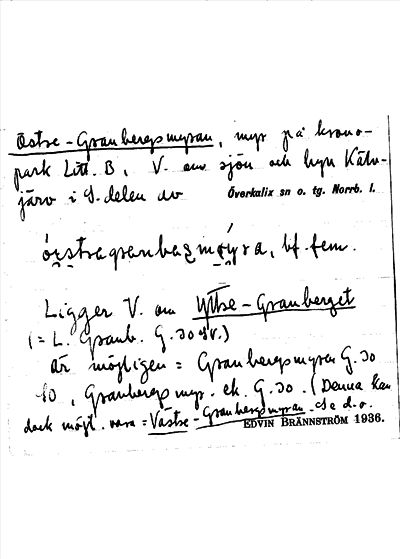 Östre-Granbergsmyran, myr på krono-
park Litt. B, V. om sjön och byn Kälv-
järv i S. delen av Överkalix sn o. tg. Norrb. l.
bf. fem.
Ligger V. om Yttre-Granberget
(= L. Granb. G. 30 SV.)
Är möjligen = Granbergsmyren G. 30
Granbergsmyr. ek. G. 30. (Denna kan
dock möjl. vara = Västre-Granbergsmyran. Se d.o.
EDVIN BRÄNNSTRÖM 1936.